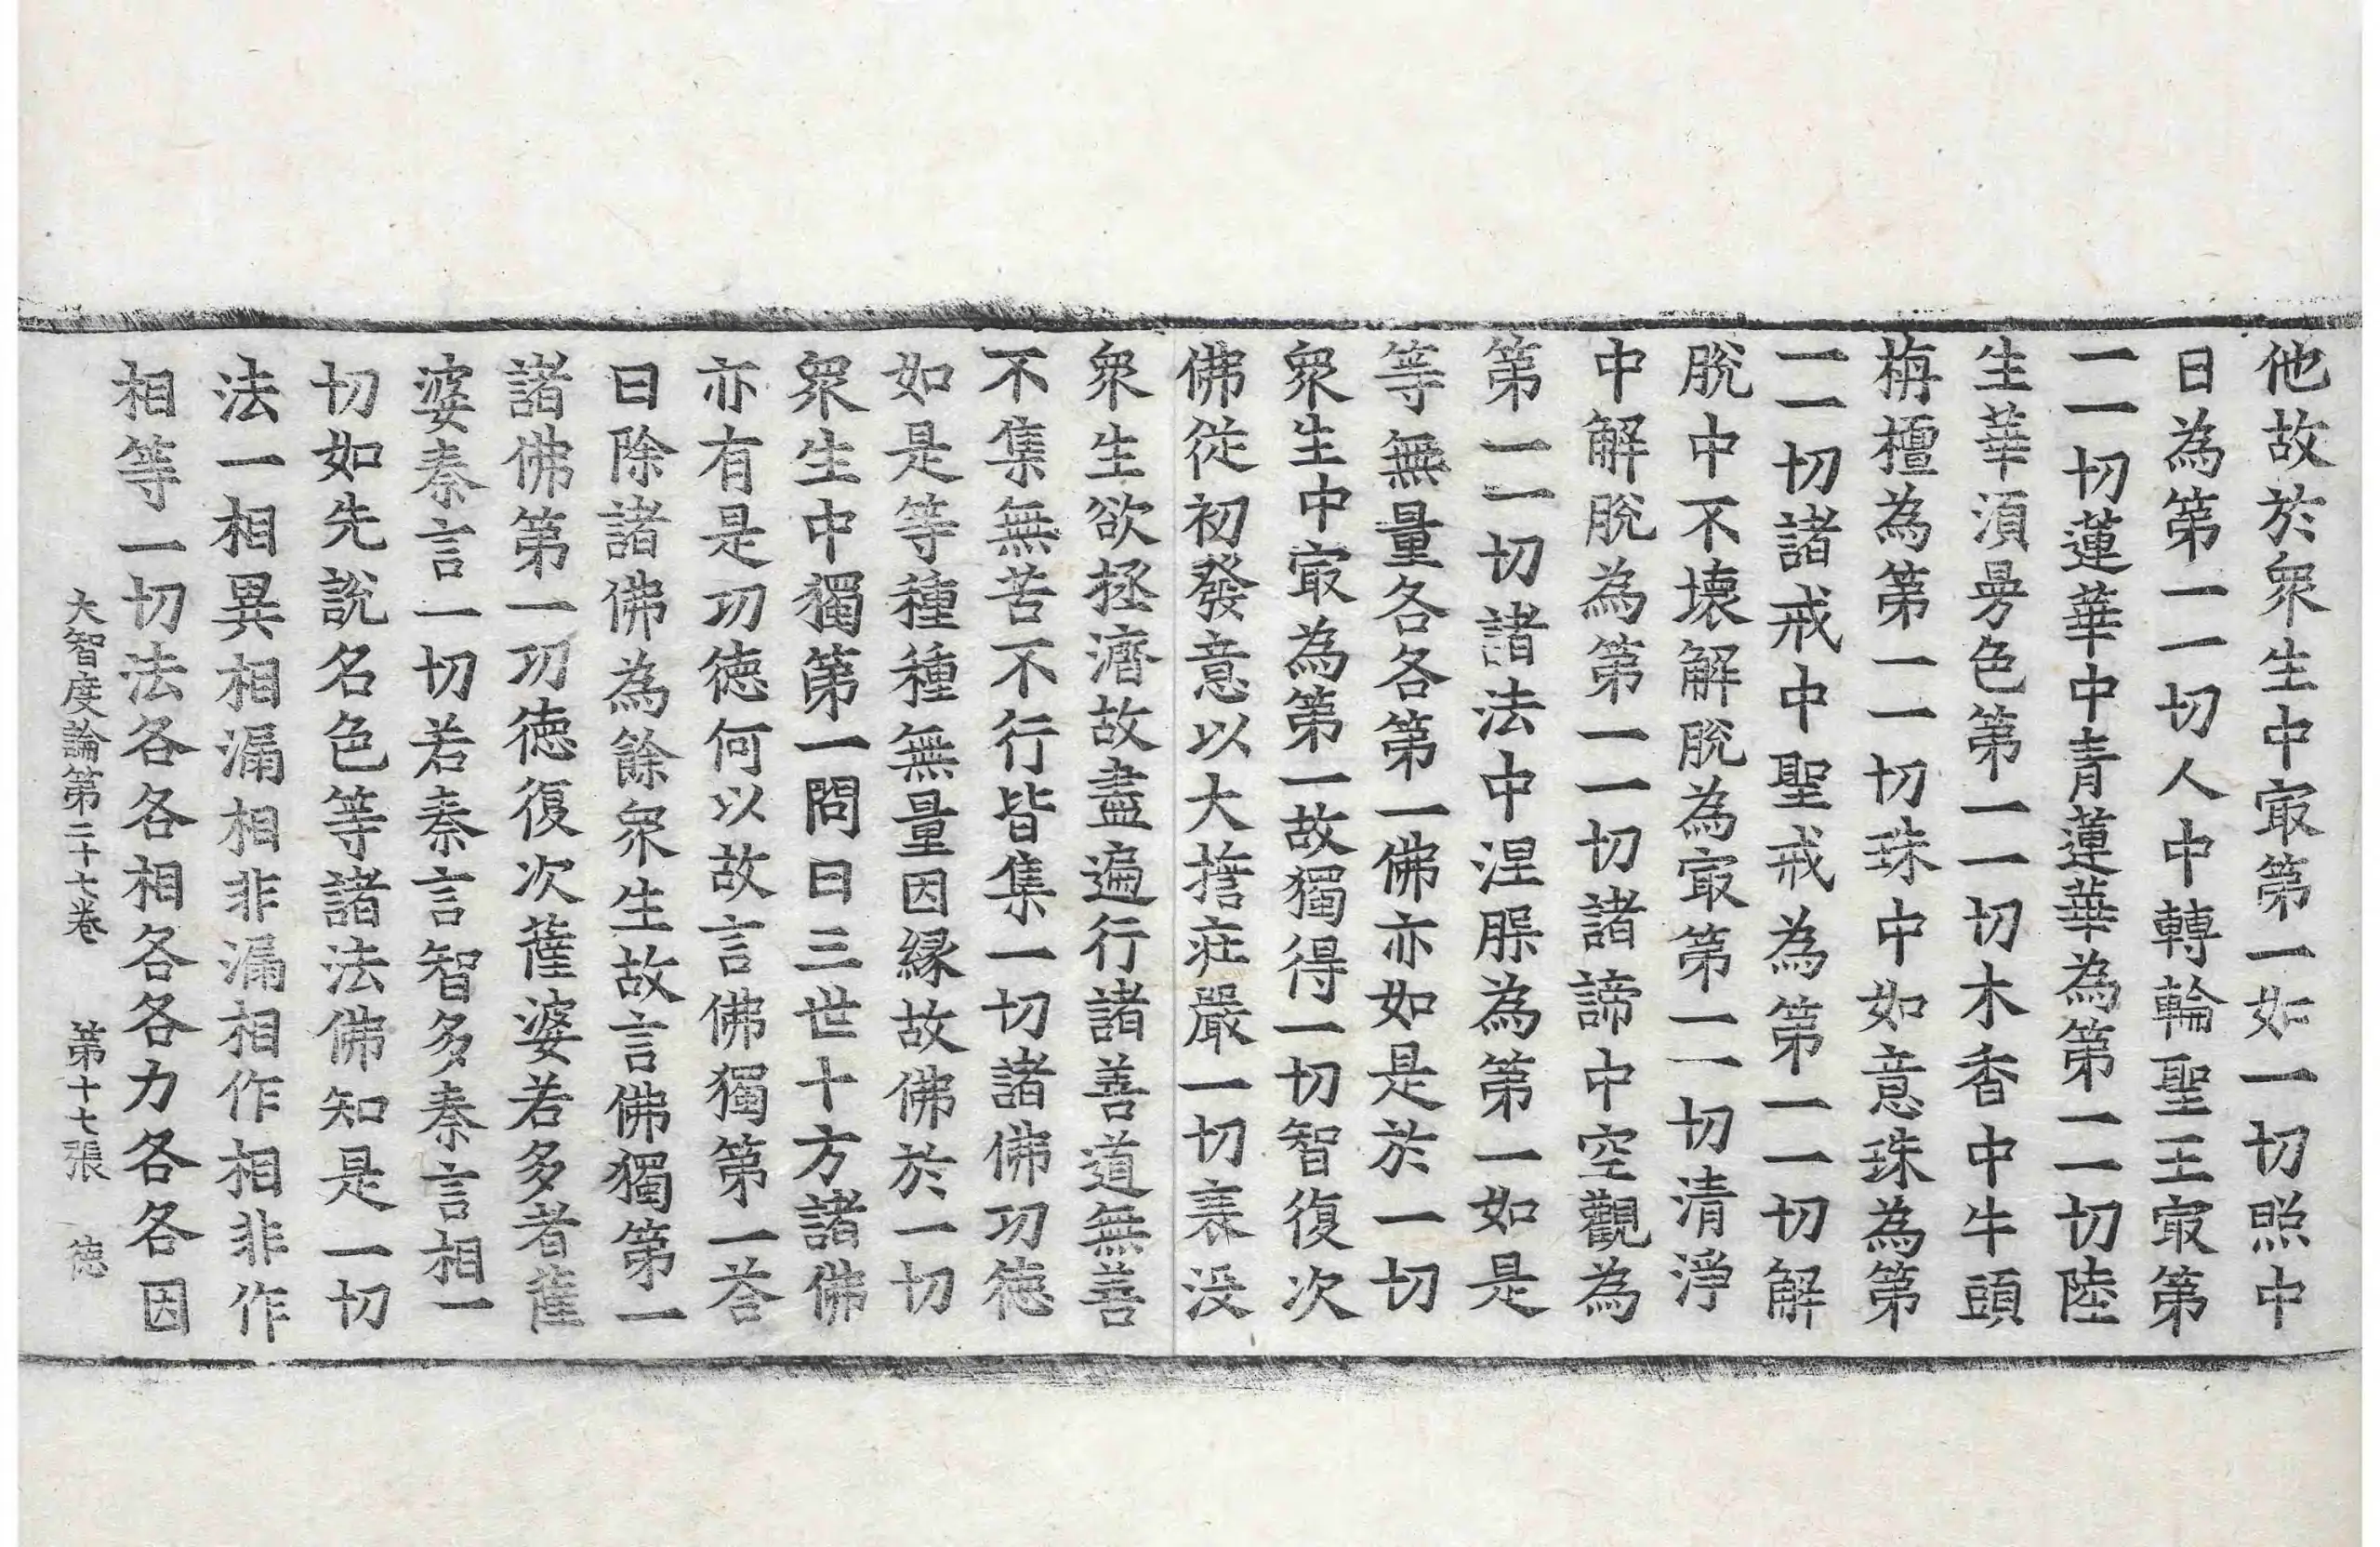 他故於衆生中㝡第一如一切照中
日為第一一切人中轉輪聖王㝡第
一一切蓮華中青蓮華為第一一切陸
生華湏曼色第一一切木香中牛頭
栴檀為第一一切珠中如意珠為第
一一切諸戒中聖戒為第一一切解
脫中不壞解脫為㝡第一一切清淨
中解脫為第一一切諸諦中空觀為
第一一切諸法中涅槃為第一如是
等無量各各第一佛亦如是於一切
衆生中㝡為第一故獨得一切智復次
佛從初發意以大擔莊嚴一切衰没
衆生欲拯濟故盡遍行諸善道無善
不集無苦不行皆集一切諸佛功德
如是等種種無量因縁故佛於一切
衆生中獨第一問曰三世十方諸佛
亦有是功徳何以故言佛獨第一荅
曰除諸佛為餘衆生故言佛獨第一
諸佛第一功徳復次薩婆若多者薩
婆秦言一切若秦言智多秦言相一
切如先說名色等諸法佛知是一切
法一相異相漏相非漏相作相非作
相等一切法各各相各各力各各因
大智度論第二十七卷 第十七張 徳